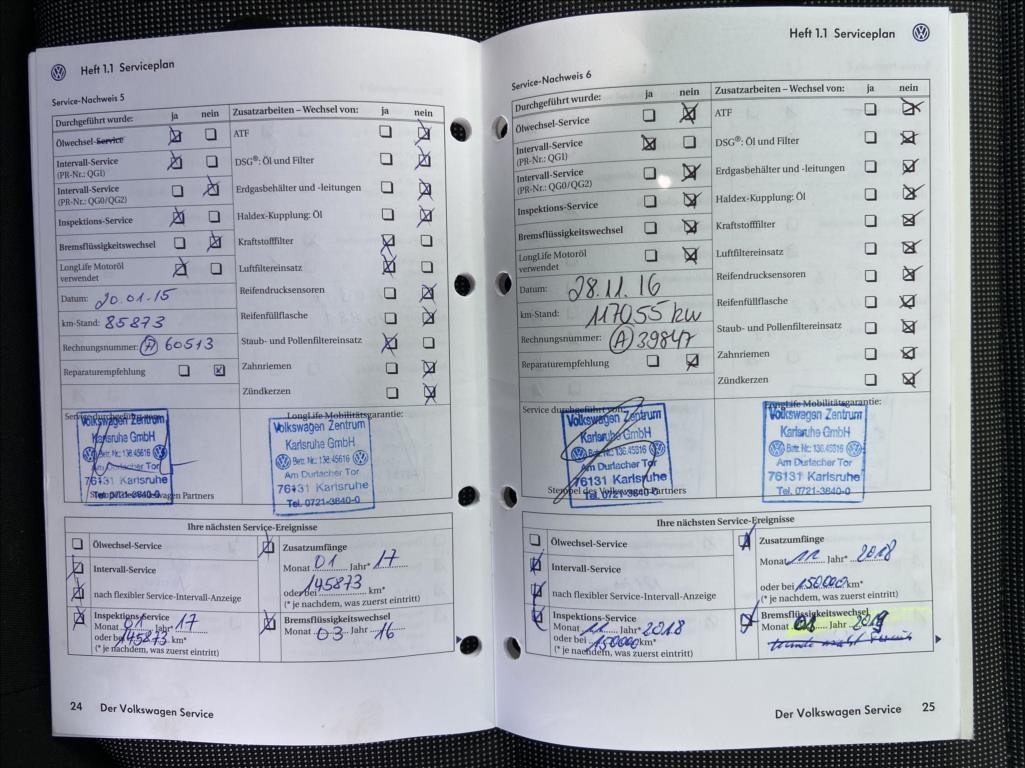 Heft 1.1 Serviceplan
Service-Nachweis 5
Durchgeführt wurde: ja nein
Ölwechsel-Service
Intervall-Service
(PR-Nr.: QGI)
Intervall-Service
(PR-Nr.: QG0/QG2)
Inspektions-Service
Bremsflüssigkeitswechsel
LongLife Motoröl
verwendet
Datum: 20.01.15
km-Stand: 85873
Rechnungsnummer: A 60513
Reparaturempfehlung
Zusatzarbeiten – Wechsel von: ja nein
ATF
DSG®: Öl und Filter
Erdgasbehälter und -leitungen
Haldex-Kupplung: Öl
Kraftstofffilter
Luftfiltereinsatz
Reifendrucksensoren
Reifenfüllflasche
Staub- und Pollenfiltereinsatz
Zahnriemen
Zündkerzen
Service durchgeführt von:
Volkswagen Zentrum
Karlsruhe GmbH
Betr. Nr.: 136.45616
Am Durlacher Tor
76131 Karlsruhe
Tel. 0721-3840-0
Stempel des Volkswagen Partners
LongLife Mobilitätsgarantie:
Volkswagen Zentrum
Karlsruhe GmbH
Betr. Nr.: 136.45616
Am Durlacher Tor
76131 Karlsruhe
Tel. 0721-3840-0
Ihre nächsten Service-Ereignisse
Ölwechsel-Service
Intervall-Service
nach flexibler Service-Intervall-Anzeige
Inspektions-Service
Monat 01 Jahr* 17
oder bei 145873 km*
(* je nachdem, was zuerst eintritt)
Zusatzumfänge
Monat 01 Jahr* 17
oder bei 145873 km*
(* je nachdem, was zuerst eintritt)
Bremsflüssigkeitswechsel
Monat 03 Jahr 16
24 Der Volkswagen Service
Heft 1.1 Serviceplan
Service-Nachweis 6
Durchgeführt wurde: ja nein
Ölwechsel-Service
Intervall-Service
(PR-Nr.: QGI)
Intervall-Service
(PR-Nr.: QG0/QG2)
Inspektions-Service
Bremsflüssigkeitswechsel
LongLife Motoröl
verwendet
Datum: 28.11.16
km-Stand: 117055 km
Rechnungsnummer: A 39847
Reparaturempfehlung
Zusatzarbeiten – Wechsel von: ja nein
ATF
DSG®: Öl und Filter
Erdgasbehälter und -leitungen
Haldex-Kupplung: Öl
Kraftstofffilter
Luftfiltereinsatz
Reifendrucksensoren
Reifenfüllflasche
Staub- und Pollenfiltereinsatz
Zahnriemen
Zündkerzen
Service durchgeführt von:
Volkswagen Zentrum
Karlsruhe GmbH
Betr. Nr.: 136.45616
Am Durlacher Tor
76131 Karlsruhe
Tel. 0721-3840-0
Stempel des Volkswagen Partners
LongLife Mobilitätsgarantie:
Volkswagen Zentrum
Karlsruhe GmbH
Betr. Nr.: 136.45616
Am Durlacher Tor
76131 Karlsruhe
Tel. 0721-3840-0
Ihre nächsten Service-Ereignisse
Ölwechsel-Service
Intervall-Service
nach flexibler Service-Intervall-Anzeige
Inspektions-Service
Monat 11 Jahr* 2018
oder bei 150000 km*
(* je nachdem, was zuerst eintritt)
Zusatzumfänge
Monat 11 Jahr* 2018
oder bei 150000 km*
(* je nachdem, was zuerst eintritt)
Bremsflüssigkeitswechsel
Monat 08 Jahr 2019
Der Volkswagen Service 25